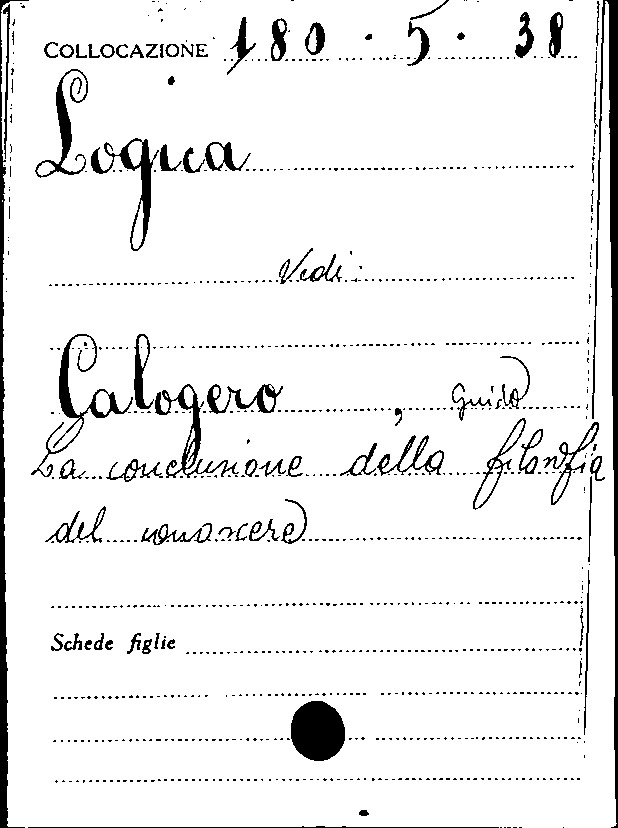 COLLOCAZIONE 180 · 5 · 38
Logica
Vedi:
Calogero, Guido
La conclusione della filosofia
del conoscere
Schede figlie